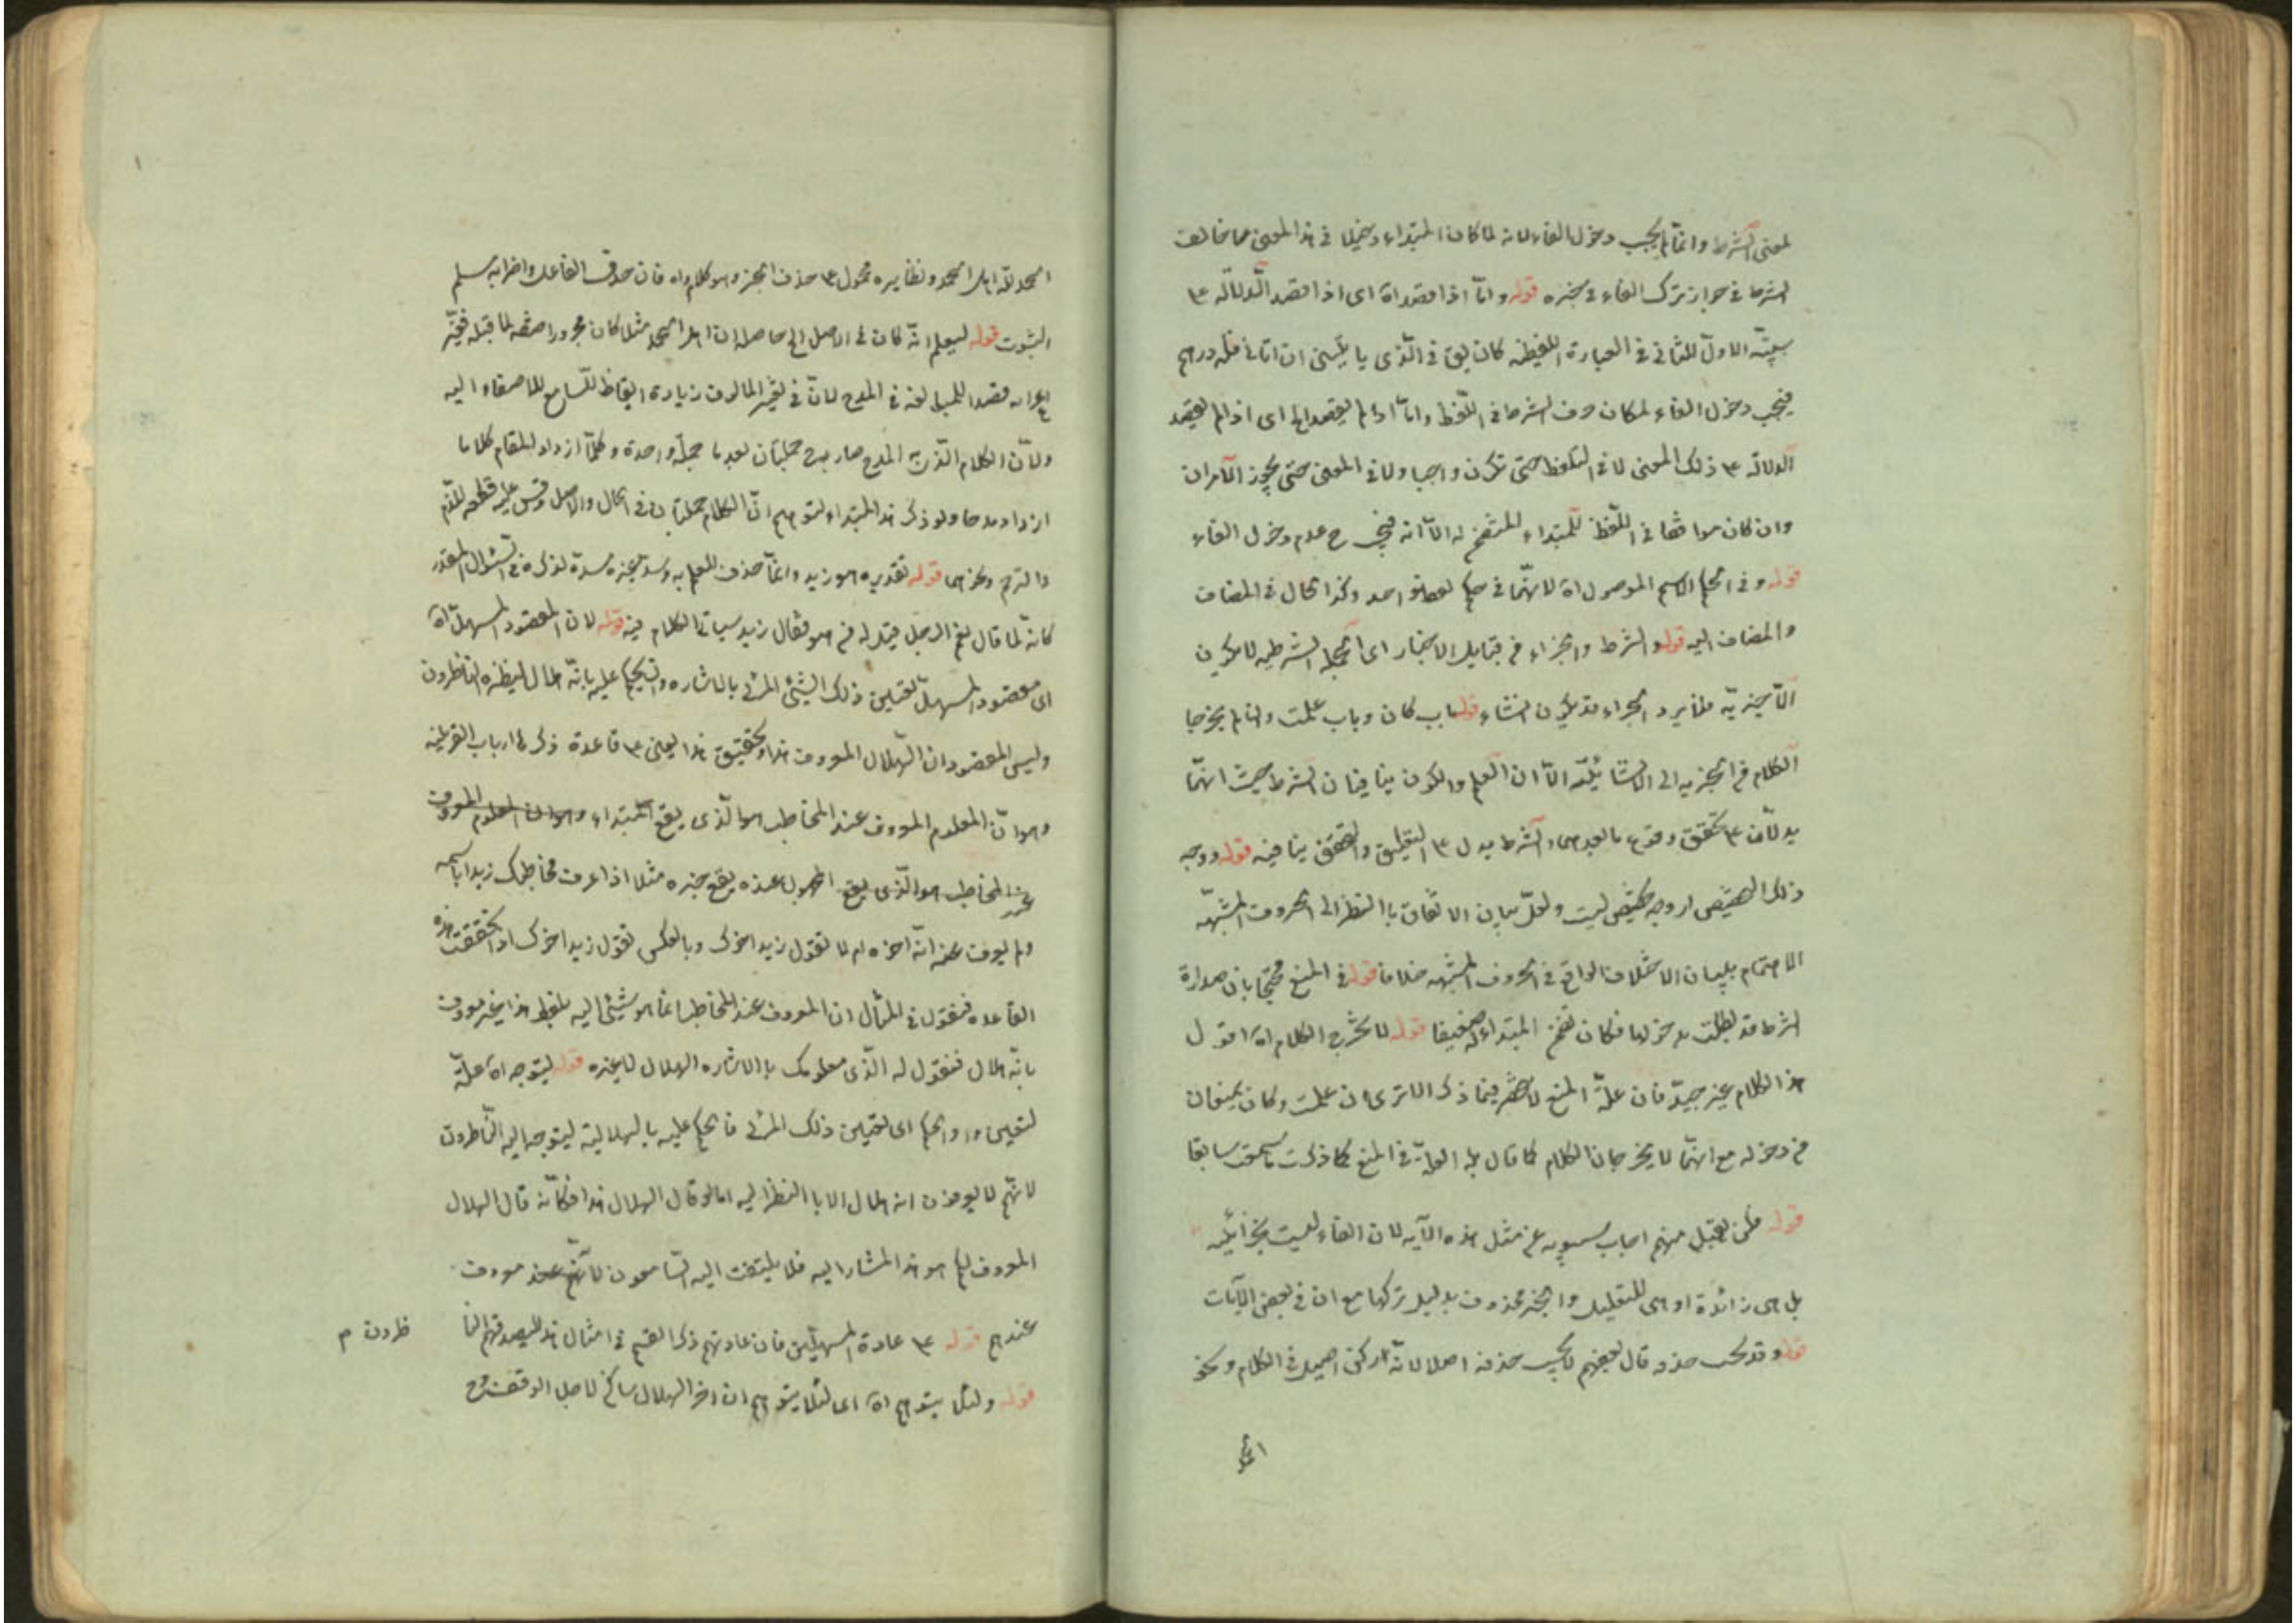 لمعنى الشرط وانما لم يجب دخول الفاء لانه لما كان المبتداء دخيلا فى هذا المعنى مما خالف
الشرط فى جواز ترك الفاء فى خبره قوله واما اذا قصد اه اى اذا قصد الدلالة ع
سببية الاول للثانى فى العبارة اللفظية كان يق فى الذى ياتينى ان اتانى فله درهم
فيجب دخول الفاء لمكان حرف الشرط فى اللفظ واما اذا لم يقصد الخ اى اذا لم يقصد
الدلالة ع ذلك المعنى لا فى التلفظ حتى تكون واجبا ولا فى المعنى حتى يجوز الامران
وان كان موافقا فى اللفظ للمبتداء المتضمن له الا انه فيجب ح عدم دخول الفاء
قوله وفى حكم الاسم الموصول اه لانهما فى حكم لفظ واحد وكذا الحال فى المضاف
والمضاف اليه قوله والشرط والجزاء من قبايل الاخبار اى الجملة الشرطية لا يكون
الا خبرية فلا يرد الجزاء قد يكون انشاء قوله باب كان وباب علمت وان لم يخرجا
الكلام من الخبرية الى الانشائية الا ان العلم والكون ينافيان الشرط حيث انهما
يدلان ع تحقق وقوع ما بعدهما والشرط يدل ع التعليق والتحقق ينافيه قوله ووجه
ذلك التخصيص او وجه تخصيص ليت ولعل ببيان الاتفاق بالنظر الى الحروف المشبهة
الاهتمام ببيان الاختلاف الواقع فى الحروف المشبهه خلافا قوله فى المنع محتجا بان صدارة
الشرط قد بطلت بدخولها فكان تضمن المبتداء له ضعيفا قوله لا يخرج الكلام اه اقول
هذا الكلام غير جيد فان علة المنع لا ينحصر فيما ذكر الا ترى ان علمت وكان يمنعان
من دخوله مع انهما لا يخرجان الكلام كما قال بل العلة فى المنع كما ذكرت ما سمعت سابقا
قوله فمن يقبل منهم اجاب سيبويه عن مثل هذه الآيه لان الفاء ليست بجزائية
بل هى زائدة او هى للتعليل والخبر محذوف بدليل تركها مع ان فى بعض الآيات
قوله وقد يجب حذفه قال بعضهم لا يجب حذفه اصلا لانه ركن اصيل فى الكلام ونحو
الحمد
الحمد لله اهل الحمد ونظايره محمول ع حذف الخبر وهو كلام واه فان حذف الفاعل واضرابه مسلم
الثبوت قوله ليعلم انه كان فى الاصل الخ حاصله ان اهل الحمد مثلا كان مجرورا صفة لما قبله فغير
اعرابه قصدا للمبالغة فى المدح لان فى تغير المالوف زيادة ايقاظ للسامع للاصغاء اليه
ولان الكلام الذى به المدح صار به ح جملتان بعد ما جملة واحدة وكلما ازداد المقام كلاما
ازداد مدحا ولو ذكر هذا المبتداء لتوهم ان الكلام جملتان فى الحال والاصل وقس عليه قطعه للذم
والترحم ونحوهما قوله تقديره هو زيد وانما حذف للعلم به وسد خبره مسده لذكره فى السؤال المقدر
كانه لما قال نعم الرجل قيل له من هو فقال زيد سياتى الكلام فيه قوله لان المقصود المستهل اه
اى مقصود المستهل تعيين ذلك الشئ المرئى بالاشاره والحكم عليه بانه هلال لينظره الناظرون
وليس المقصود ان الهلال المعروف هذا وتحقيق هذا يبنى ع قاعدة ذكرها ارباب القرينه
وهو ان المعلوم المعروف عند المخاطب هو الذى يقع المبتداء وهو ان المعلوم المعروف
عند المخاطب هو الذى يقع المجهول عنده يقع خبره مثلا اذا عرف مخاطبك زيدا باسمه
ولم يعرف عنه انه اخوه ام لا تقول زيد اخوك وبالعكس تقول زيد اخوك اذا تحققت هذه
القاعده فنقول فى المثال ان المعروف عند المخاطب انما هو شئ اليه بلفظ هذا غير معروف
بانه هلال فنقول له الذى معلومك بالاشاره الهلال لا غيره قوله ليتوجه اه علة
لتعيين و او الحكم اى لتعيين ذلك المرئى فالحكم عليه بالهلالية ليتوجه اليه الناظرون
لانهم لا يعرفون انه هلال الا بالنظر اليه اما لو قال الهلال هذا فكانه قال الهلال
المعروف لكم هو هذا المشار اليه فلا يلتفت اليه السامعون لانهم عند معروف
عندهم قوله ع عادة المستهلين فان عادتهم ذكر القسم فى امثال هذا ليصدقهم النا
ظرون م
قوله ولئلا يتوهم اه اى لئلا يتوهم ان اخر الهلال ساكن لاجل الوقف وح